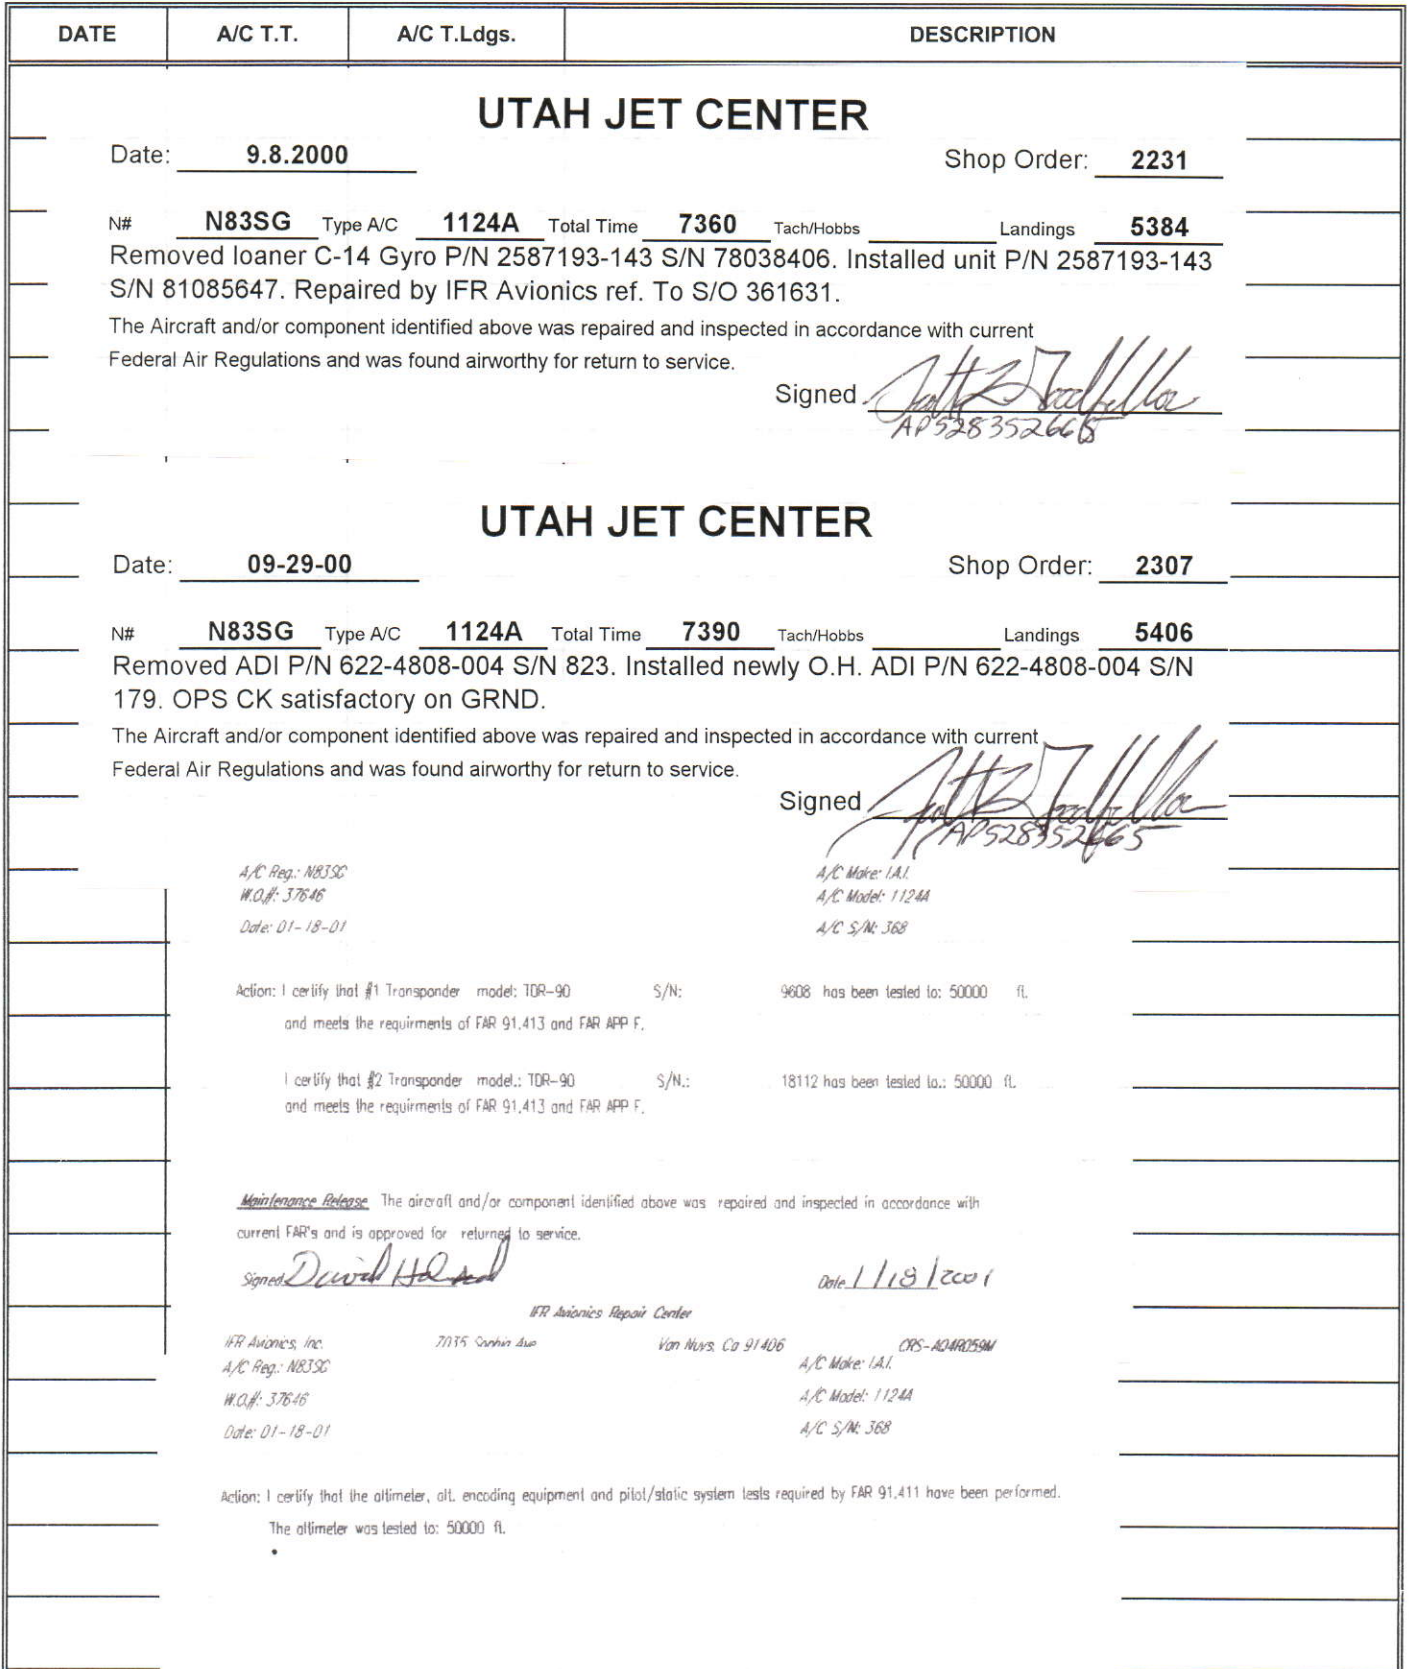 DATE A/C T.T. A/C T.Ldgs. DESCRIPTION
UTAH JET CENTER
Date: 9.8.2000 Shop Order: 2231
N# N83SG Type A/C 1124A Total Time 7360 Tach/Hobbs Landings 5384
Removed loaner C-14 Gyro P/N 2587193-143 S/N 78038406. Installed unit P/N 2587193-143
S/N 81085647. Repaired by IFR Avionics ref. To S/O 361631.
The Aircraft and/or component identified above was repaired and inspected in accordance with current
Federal Air Regulations and was found airworthy for return to service.
Signed Scott B Goodfellow
AP528352665
UTAH JET CENTER
Date: 09-29-00 Shop Order: 2307
N# N83SG Type A/C 1124A Total Time 7390 Tach/Hobbs Landings 5406
Removed ADI P/N 622-4808-004 S/N 823. Installed newly O.H. ADI P/N 622-4808-004 S/N
179. OPS CK satisfactory on GRND.
The Aircraft and/or component identified above was repaired and inspected in accordance with current
Federal Air Regulations and was found airworthy for return to service.
Signed Scott B Goodfellow
AP528352665
A/C Reg.: N83SG A/C Make: I.A.I.
W.O.#: 37646 A/C Model: 1124A
Date: 01-18-01 A/C S/N: 368
Action: I certify that #1 Transponder model: TDR-90 S/N: 9608 has been tested to: 50000 ft.
and meets the requirments of FAR 91.413 and FAR APP F.
I certify that #2 Transponder model.: TDR-90 S/N.: 18112 has been tested to.: 50000 ft.
and meets the requirments of FAR 91.413 and FAR APP F.
Maintenance Release The aircraft and/or component identified above was repaired and inspected in accordance with
current FAR's and is approved for returned to service.
Signed David Date 1/18/2001
IFR Avionics Repair Center
IFR Avionics, Inc. 7035 Ave Van Nuys, Ca 91406 CRS-AQ4R059M
A/C Reg.: N83SG A/C Make: I.A.I.
W.O.#: 37646 A/C Model: 1124A
Date: 01-18-01 A/C S/N: 368
Action: I certify that the altimeter, alt. encoding equipment and pitot/static system tests required by FAR 91.411 have been performed.
The altimeter was tested to: 50000 ft.